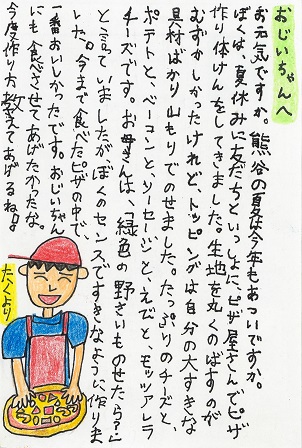 おじいちゃんへ
お元気ですか。熊谷の夏は今年もあついですか。
ぼくは、夏休みに友だちといっしょに、ピザ屋さんでピザ
作り体けんをしてきました。生地を丸くのばすのが
むずかしかったけれど、トッピングは自分の大すきな
具材ばかり山もりでのせました。たっぷりのチーズと、
ポテトと、ベーコンと、ソーセージと、えびと、モッツアレラ
チーズです。お母さんは、「緑色の野さいものせたら？」
と言っていましたがぼくのセンスですきなように作りま
した。今まで食べたピザの中で、
一番おいしかったです。おじいちゃん
にも食べさせてあげたかったな。
今度作り方教えてあげるね!!
たくより